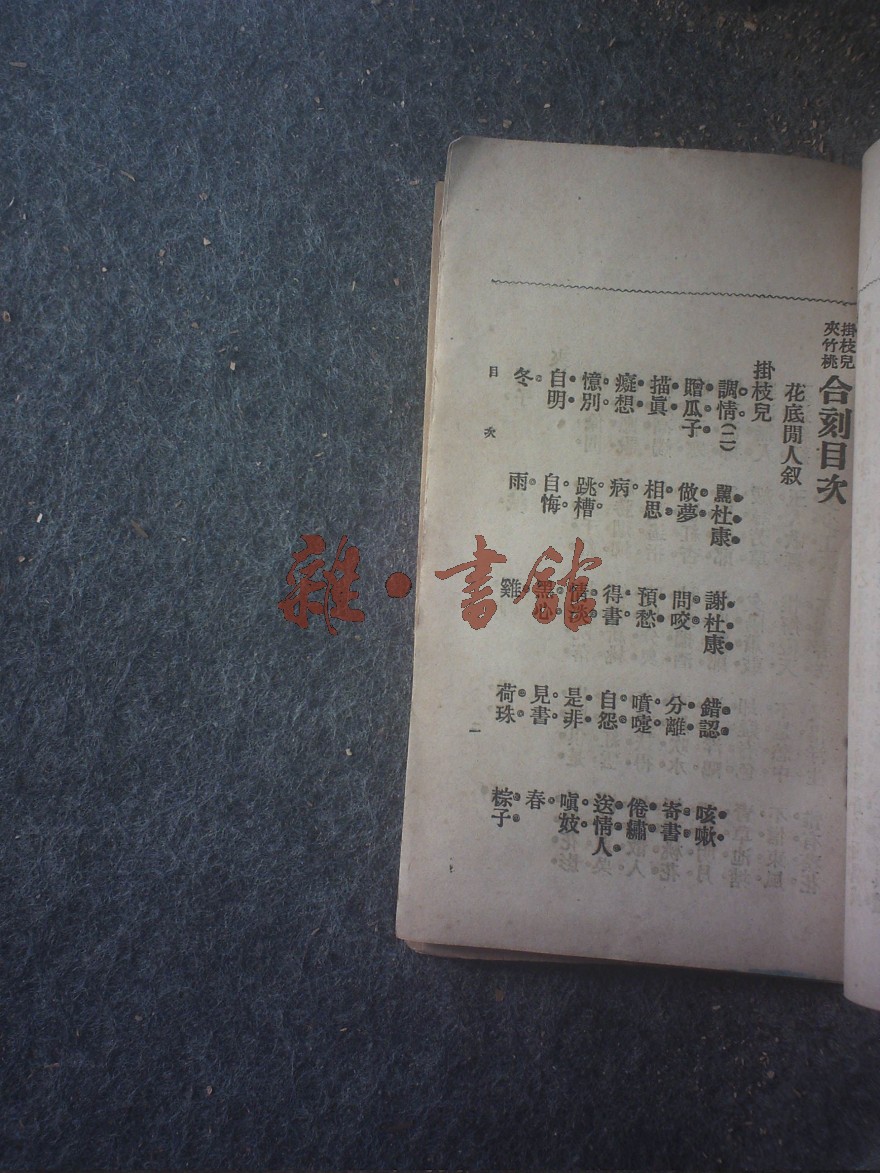 掛枝兒
夾竹桃
合刻目次
花底閒人叙
掛枝兒
調情(二) 罵杜康 謝杜康 錯認 咳嗽
贈瓜子 做夢 問咬 分離 寄書
描眞 相思 預愁 噴嚏 倦繡
癡想 病 得書 自怨 送情人
憶別 跳槽 情淡 是非 嗔妓
自明 自悔 黑心 見書 春
冬 雨 雞 荷珠 粽子
目次 一
雜·書館